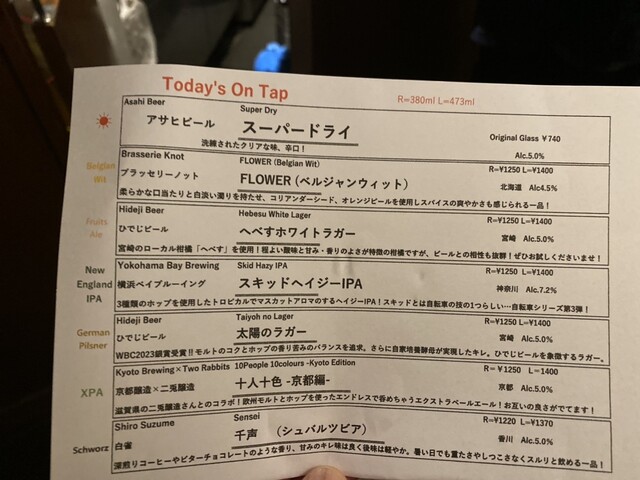 Today's On Tap
R=380ml L=473ml
Asahi Beer Super Dry
アサヒビール スーパードライ Original Glass ¥740
洗練されたクリアな味、辛口！ Alc.5.0%
Belgian Wit
Brasserie Knot FLOWER (Belgian Wit) R=¥1250 L=¥1400
ブラッセリーノット FLOWER (ベルジャンウィット) 北海道 Alc4.5%
柔らかな口当たりと白淡い濁りを持たせ、コリアンダーシード、オレンジピールを使用しスパイスの爽やかさも感じられる一品！
Fruits Ale
Hideji Beer Hebesu White Lager R=¥1250 L=¥1400
ひでじビール へべすホワイトラガー 宮崎 Alc.5.0%
宮崎のローカル柑橘「へべす」を使用！程よい酸味と甘み・香りのよさが特徴の柑橘ですが、ビールとの相性も抜群！ぜひお試しくださいませ！
New England IPA
Yokohama Bay Brewing Skid Hazy IPA R=¥1250 L=¥1400
横浜ベイブルーイング スキッドヘイジーIPA 神奈川 Alc.7.2%
3種類のホップを使用したトロピカルでマスカットアロマのするヘイジーIPA！スキッドとは自転車の技の1つらしい…自転車シリーズ第3弾！
German Pilsner
Hideji Beer Taiyoh no Lager R=¥1250 L=¥1400
ひでじビール 太陽のラガー 宮崎 Alc.5.0%
WBC2023銀賞受賞!!モルトのコクとホップの香り苦みのバランスを追求。さらに自家培養酵母が実現したキレ。ひでじビールを象徴するラガー。
XPA
Kyoto Brewing×Two Rabbits 10People 10colours -Kyoto Edition R=¥1250 L=1400
京都醸造×二兎醸造 十人十色 -京都編- 京都 Alc.5.0%
滋賀県の二兎醸造さんとのコラボ！欧州モルトとホップを使ったエンドレスで呑めちゃうエクストラペールエール！お互いの良さがでてます！
Schworz
Shiro Suzume Sensei R=¥1220 L=¥1370
白雀 千声 (シュバルツビア) 香川 Alc.5.0%
深煎りコーヒーやビターチョコレートのような香り、甘みのキレ味は良く後味は軽やか。暑い日でも重たさやしつこさなくスルリと飲める一品！